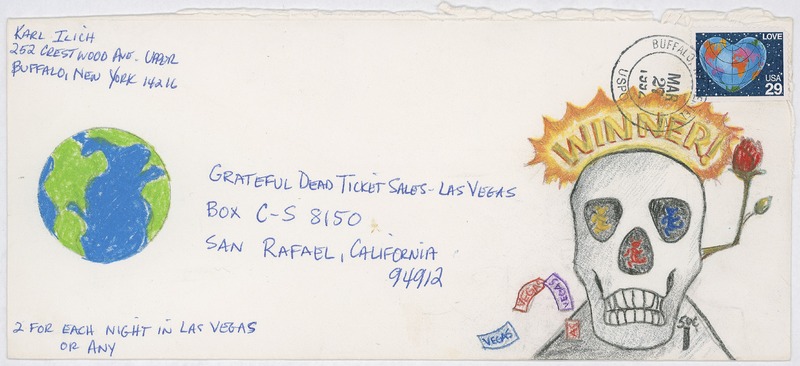 KARL ILICH
252 CRESTWOOD AVE. UPPER
BUFFALO, NEW YORK 14216
BUFFALO,
MAR
1992
USPO
LOVE
USA
29
WINNER!
GRATEFUL DEAD TICKET SALES - LAS VEGAS
BOX C-S 8150
SAN RAFAEL, CALIFORNIA
94912
VEGAS
VEGAS
VEGAS
50¢
2 FOR EACH NIGHT IN LAS VEGAS
OR ANY